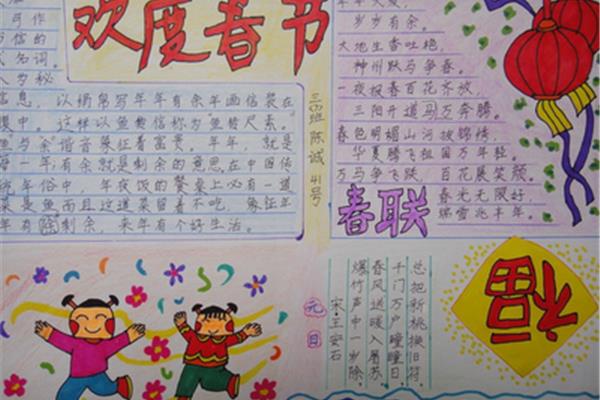 欢度春节
可作
信的
名词。
为秘
信息，以绢帛写年年有余年画信装在
年。就是
每一年有余就是剩余的意思在中国传
年俗中，年夜饭的餐桌上必有一道
菜是鱼而且这道菜留着不吃，象征年
年有剩余，来年有个好生活。
三(5)班 陈诚 41号
岁岁有余。
大地生香吐艳，
神州跃马争春。
一夜报春百花齐放，
三阳开道马万奔腾。
春色明媚山河披锦绣，
华夏腾飞祖国万年轻。
万马争飞跃，百花展笑颜。
春光无限好，
瑞雪兆丰年。
春联
元日
宋·王安石
爆竹声中一岁除，
春风送暖入屠苏。
千门万户曈曈日，
总把新桃换旧符。
福